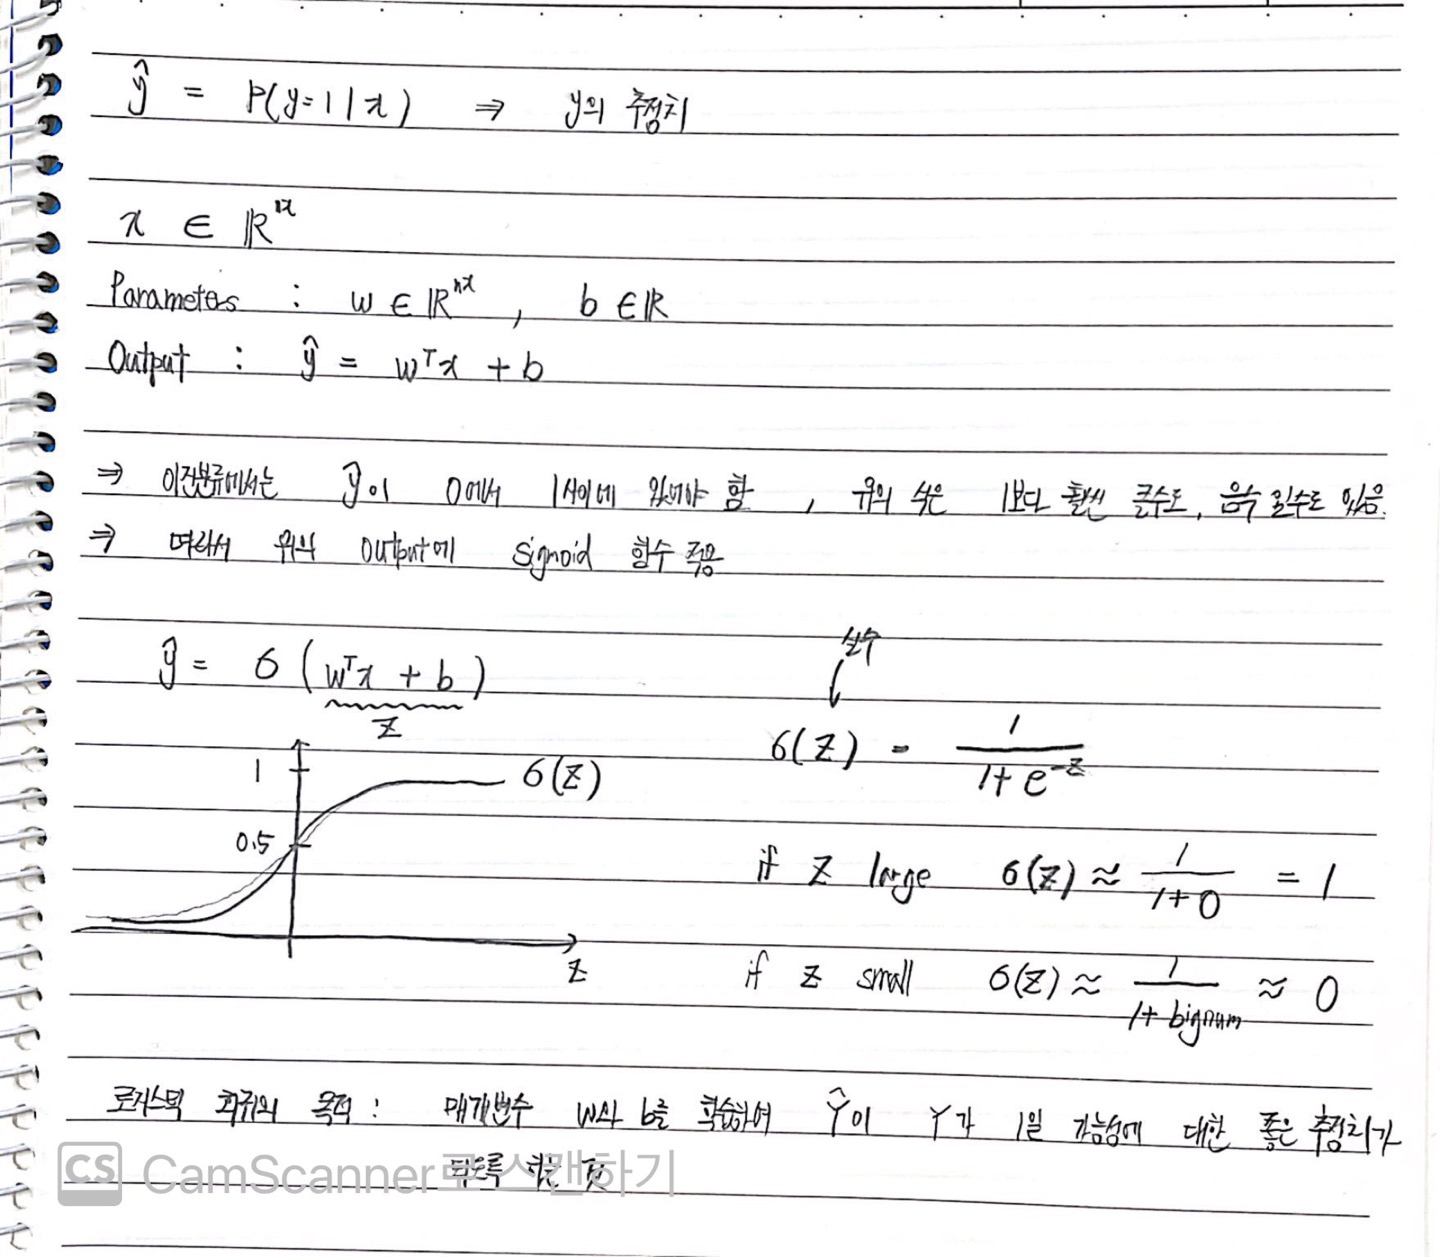 ŷ = P(y=1|x) ⇒ y의 추정치
x ∈ ℝ^nx
Parameters : w ∈ ℝ^nx , b ∈ ℝ
Output : ŷ = wᵀx + b
⇒ 이진분류에서는 ŷ이 0에서 1사이에 있어야 함 , 위의 식은 1보다 훨씬 클수도, 음수 일수도 있음.
⇒ 따라서 위의 output에 sigmoid 함수 적용
실수
ŷ = σ(wᵀx + b)
z
σ(z) = 1 / (1 + e^-z)
1
σ(z)
0.5
z
if z large σ(z) ≈ 1 / (1+0) = 1
if z small σ(z) ≈ 1 / (1+ bignum) ≈ 0
로지스틱 회귀의 목적 : 매개변수 w와 b를 학습하여 Ŷ이 Y가 1일 가능성에 대한 좋은 추정치가
되도록 하는 것
CS CamScanner로 스캔하기